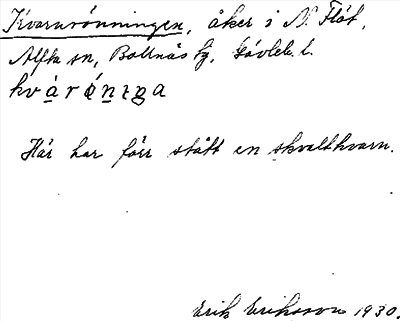 Kvarnrönningen, åker i N. Flöt,
Alfta sn, Bollnäs tg, Gävleb. l.
Här har förr stått en skvaltkvarn.
Erik Eriksson 1930.